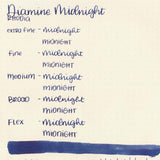 Diamine Midnight
RHODIA
extra fine - Midnight
MIDNIGHT
Fine - Midnight
MIDNIGHT
Medium - Midnight
MIDNIGHT
BROAD - Midnight
MIDNIGHT
Flex - Midnight
MIDNIGHT